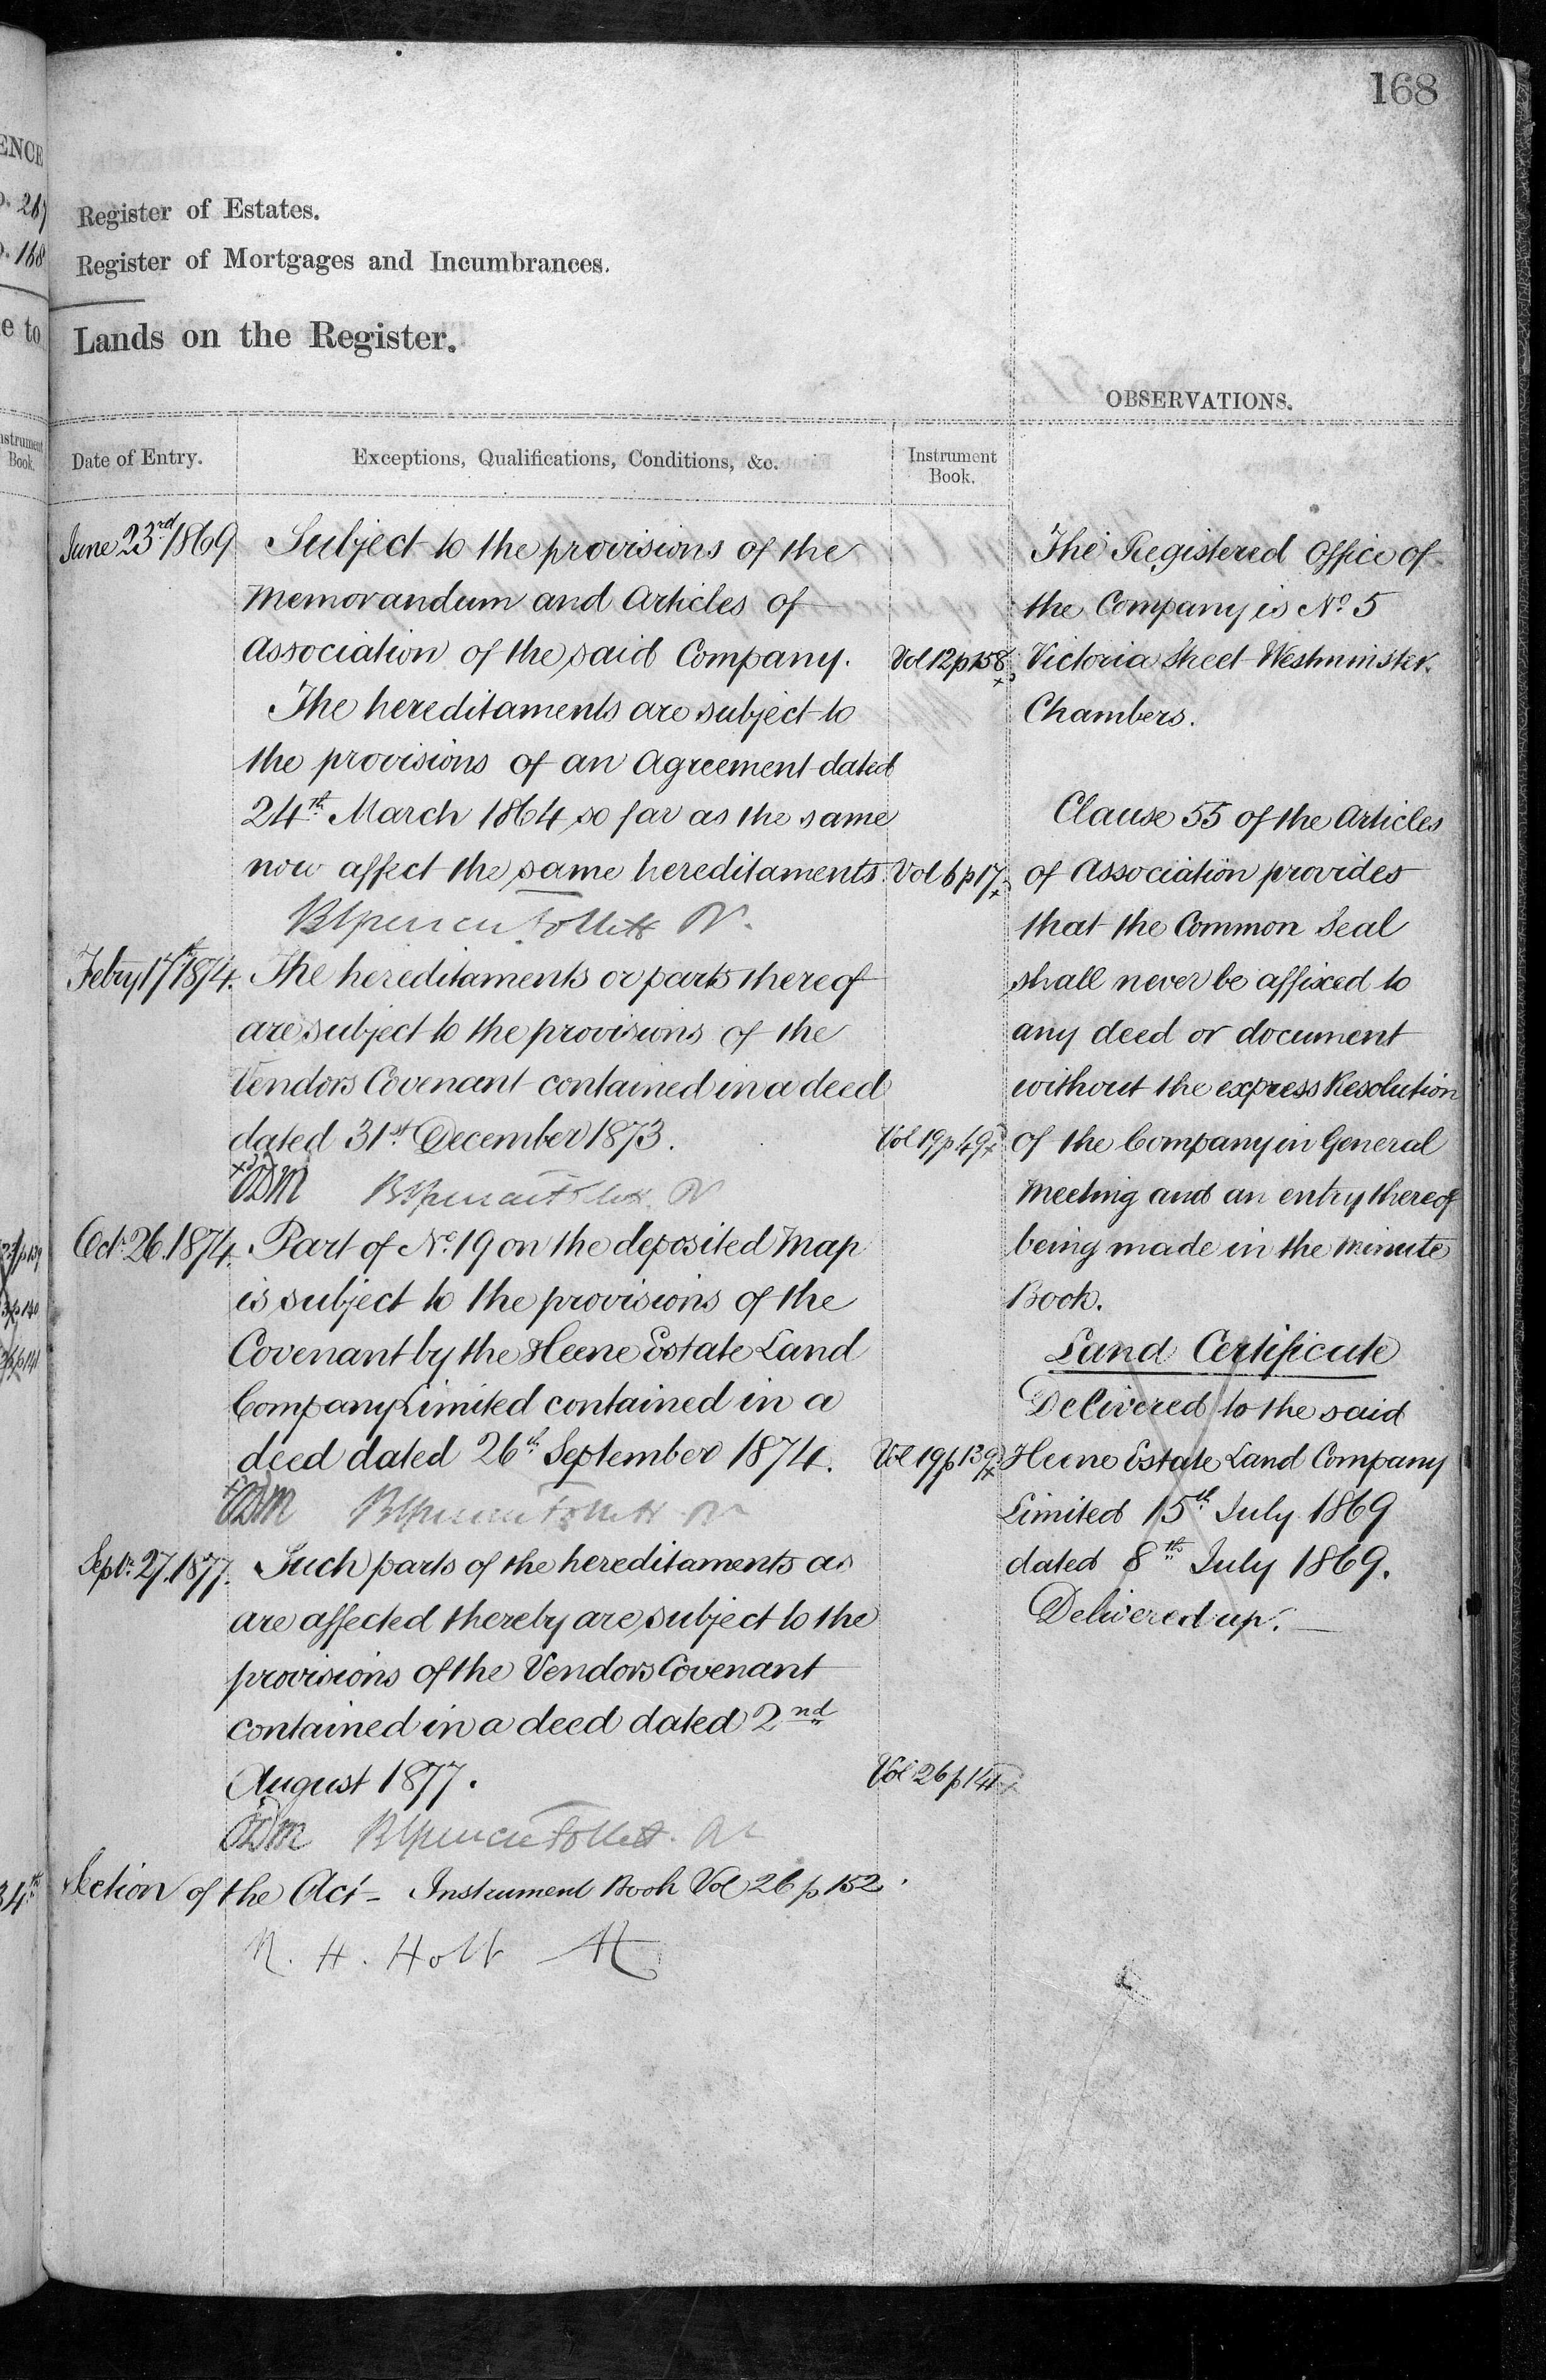 168
ENCE
p. 267
p. 168
e to
Instrument
Book.
Register of Estates.
Register of Mortgages and Incumbrances.
Lands on the Register.
OBSERVATIONS.
Date of Entry.
Exceptions, Qualifications, Conditions, &c.
Instrument
Book.
June 23rd 1869
Subject to the provisions of the
Memorandum and Articles of
Association of the said Company. Vol 12 p 158
The hereditaments are subject to
the provisions of an Agreement dated
24th March 1864 so far as the same
now affect the same hereditaments. Vol 6 p 17
BSpencer Follett R.
Febry 17th 1874. The hereditaments or parts thereof
are subject to the provisions of the
Vendors Covenant contained in a deed
dated 31st December 1873. Vol 19 p 49
BSpencer Follett R
Octr 26. 1874. Part of No 19 on the deposited Map
is subject to the provisions of the
Covenant by the Heene Estate Land
Company Limited contained in a
deed dated 26th September 1874. Vol 19 p 139
BSpencer Follett R
Septr 27. 1877. Such parts of the hereditaments as
are affected thereby are subject to the
provisions of the Vendors Covenant
contained in a deed dated 2nd
August 1877. Vol 26 p 141
BSpencer Follett. R
34th Section of the Act - Instrument Book Vol 26 p 152.
R. H. Holt
The Registered Office of
the Company is No 5
Victoria Street Westminster
Chambers.
Clause 55 of the Articles
of Association provides
that the Common Seal
shall never be affixed to
any deed or document
without the express Resolution
of the Company in General
Meeting and an entry thereof
being made in the Minute
Book.
Land Certificate
Delivered to the said
Heene Estate Land Company
Limited 15th July 1869
dated 8th July 1869.
Delivered up.